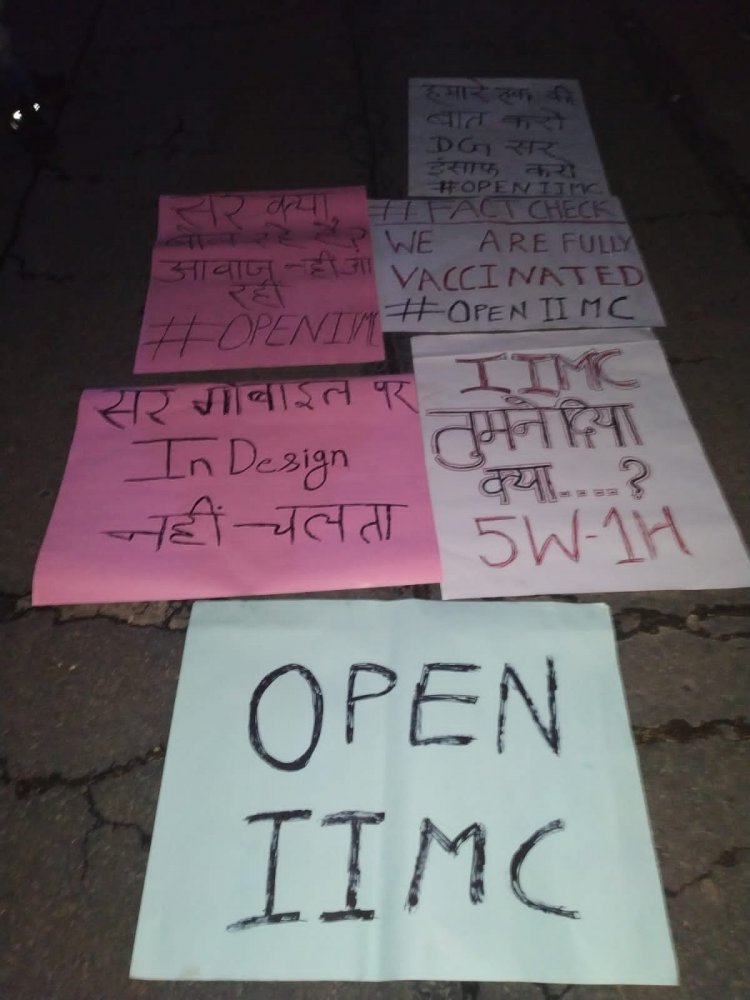 हमारे हक की
बात करो
DG सर
इंसाफ करो
#OPENIIMC
सर क्या
बोल रहे है?
आवाज नहीं आ
रही
#OPENIIMC
#FACT CHECK
WE ARE FULLY
VACCINATED
#OPEN IIMC
सर मोबाइल पर
InDesign
नहीं चलता
IIMC
तुमने दिया
क्या....?
5W-1H
OPEN
IIMC